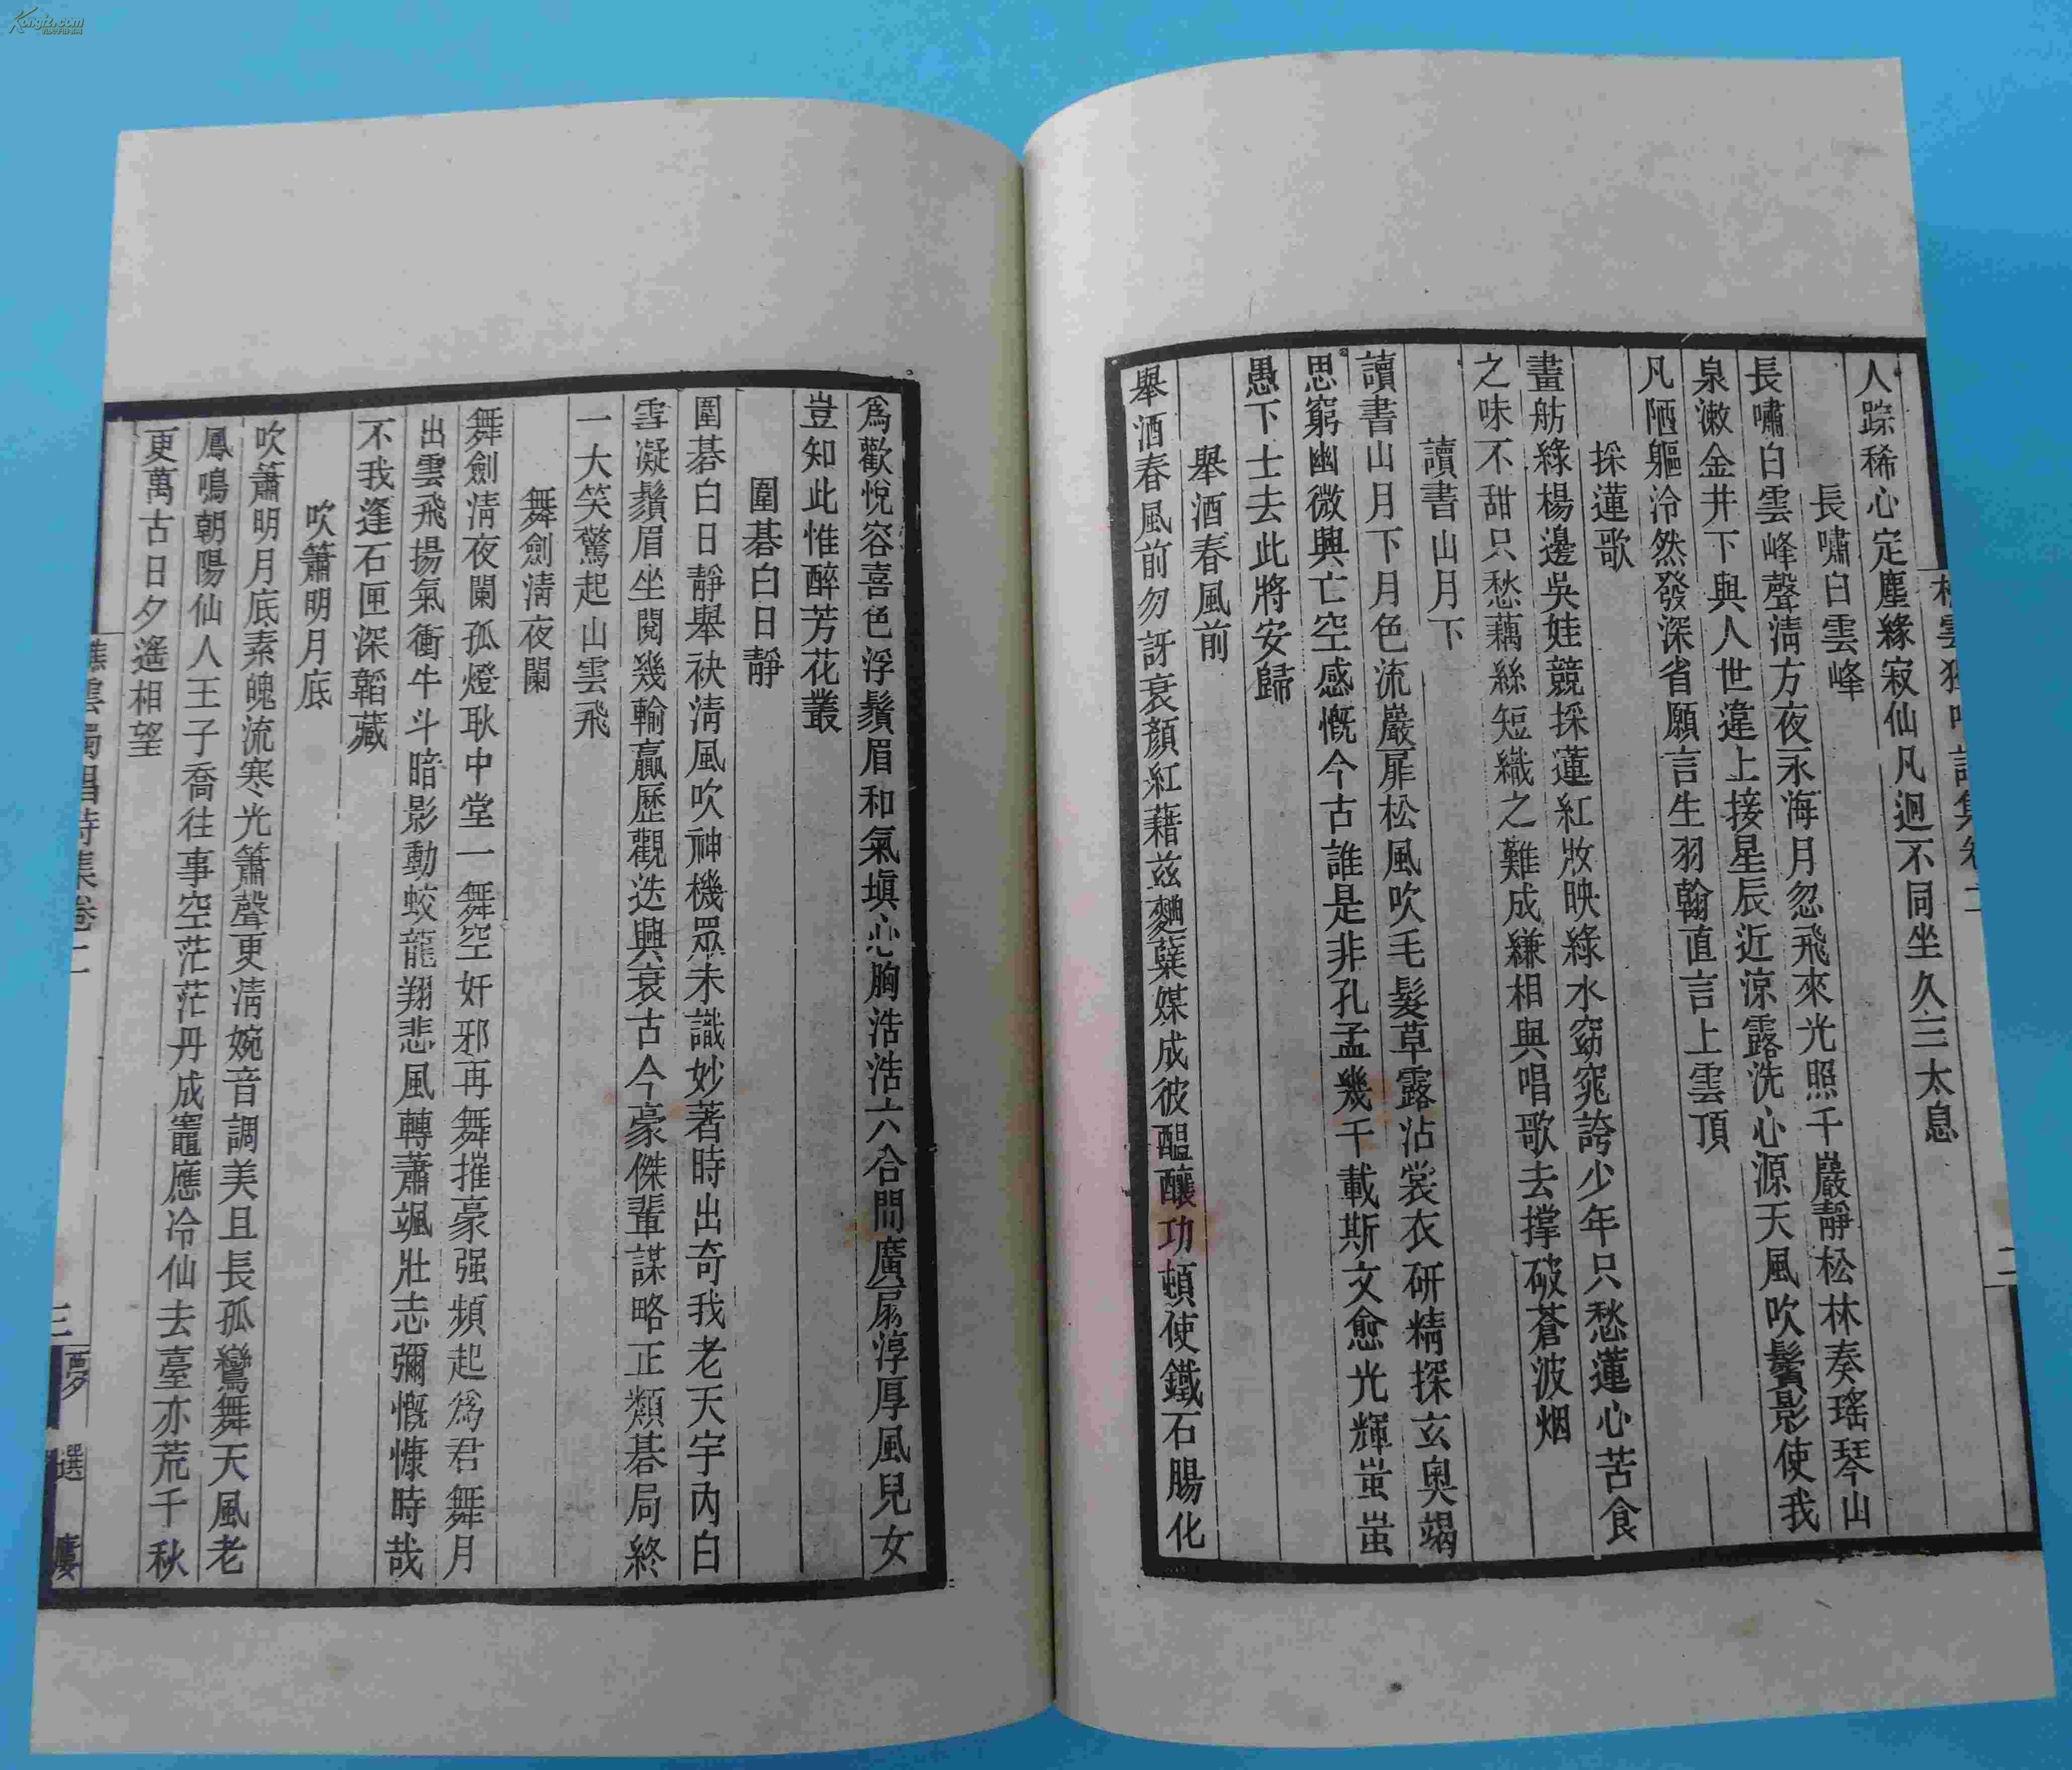 人踪稀心定塵緣寂仙凡迥不同坐久三太息
長嘯白雲峰
長嘯白雲峰聲清方夜永海月忽飛來光照千巖靜松林奏瑤琴山
泉漱金井下與人世違上接星辰近涼露洗心源天風吹鬢影使我
凡陋軀泠然發深省願言生羽翰直言上雲頂
採蓮歌
畫舫綠楊邊吳娃競採蓮紅妝映綠水窈窕誇少年只愁蓮心苦食
之味不甜只愁藕絲短織之難成縑相與唱歌去撑破蒼波烟
讀書山月下
讀書山月下月色流巖扉松風吹毛髮草露沾裳衣研精探玄奥竭
思窮幽微興亡空感慨今古誰是非孔孟幾千載斯文愈光輝蚩蚩
愚下士去此將安歸
舉酒春風前
舉酒春風前勿訝衰顏紅藉兹麯蘖媒成彼醖釀功頓使鐵石腸化
爲歡悅容喜色浮鬚眉和氣塡心胸浩浩六合間廣扇淳厚風兒女
豈知此惟醉芳花叢
圍碁白日靜
圍碁白日靜舉袂清風吹神機眾未識妙著時出奇我老天宇內白
雪凝鬚眉坐閱幾輸贏歷觀迭興衰古今豪傑輩謀略正類碁局終
一大笑驚起山雲飛
舞劍清夜闌
舞劍清夜闌孤燈耿中堂一舞空奸邪再舞摧豪强頻起爲君舞月
出雲飛揚氣衝牛斗暗影動蛟龍翔悲風轉蕭颯壯志彌慨慷時哉
不我逢石匣深韜藏
吹簫明月底
吹簫明月底素魄流寒光簫聲更清婉音調美且長孤鸞舞天風老
鳳鳴朝陽仙人王子喬往事空茫茫丹成竈應冷仙去臺亦荒千秋
更萬古日夕遙相望
樵雲獨唱詩集卷二
三
夢選廔
Kongfz.com